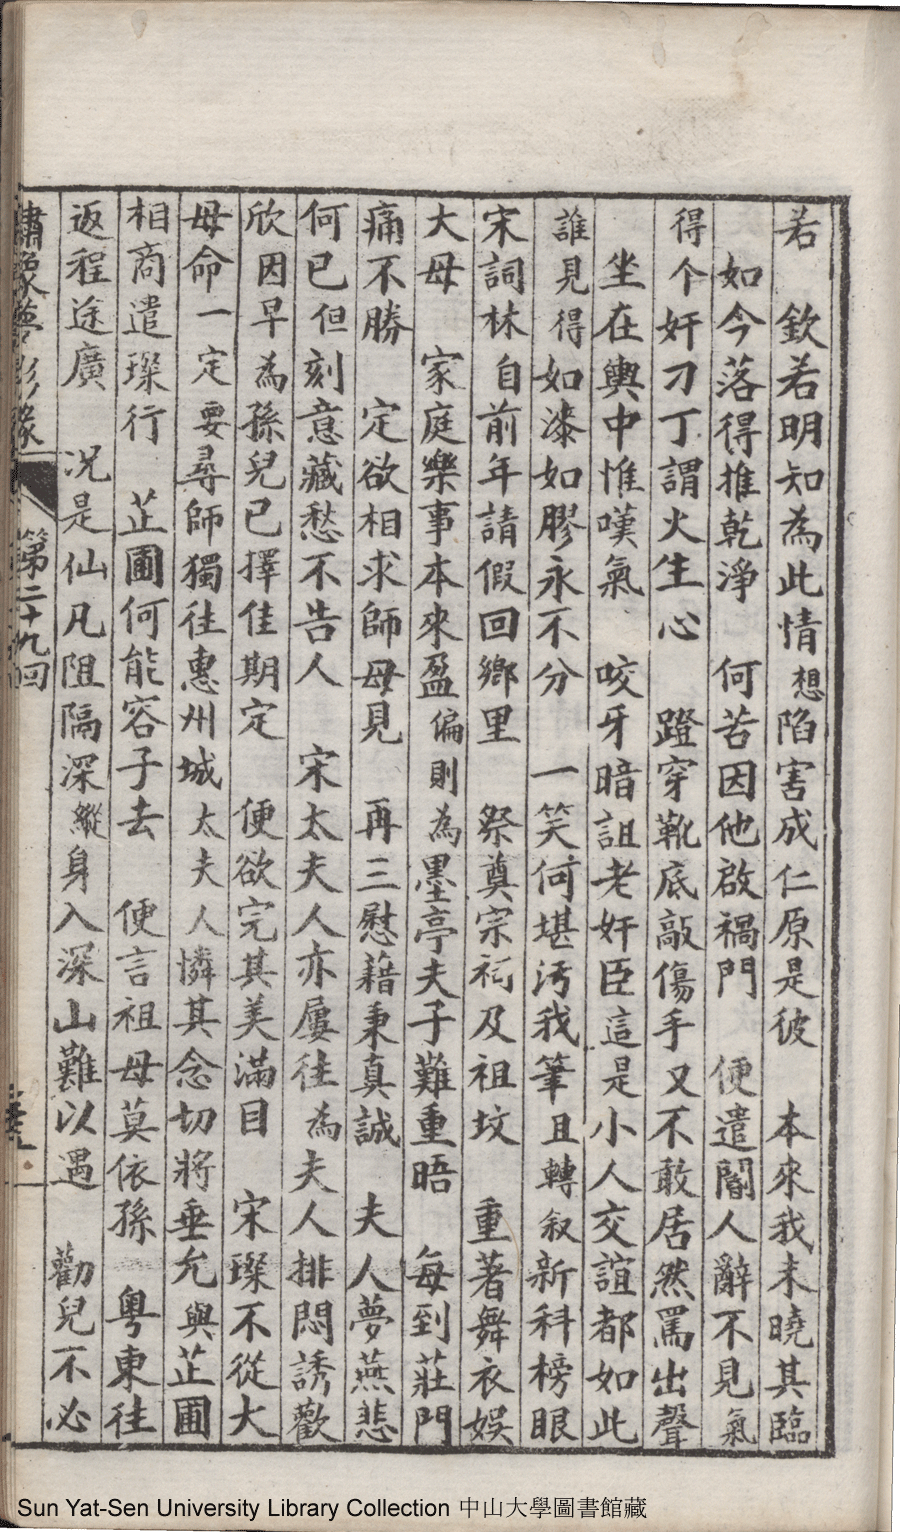 若　欽若明知為此情想陷害成仁原是彼　本來我未曉其臨
如今落得推乾淨　何苦因他啟禍門　便遣閽人辭不見氣
得个奸刁丁謂火生心　蹬穿靴底敲傷手又不敢居然罵出聲
坐在輿中惟嘆氣　咬牙暗詛老奸臣這是小人交誼都如此
誰見得如漆如膠永不分　一笑何堪污我筆且轉叙新科榜眼
宋詞林自前年請假回鄉里　祭奠宗祠及祖坟　重著舞衣娛
大母　家庭樂事本來盈偏則為墨亭夫子難重晤　每到莊門
痛不勝　定欲相求師母見　再三慰藉秉真誠　夫人夢燕悲
何已但刻意藏愁不告人　宋太夫人亦屢往為夫人排悶誘歡
欣因早為孫兒已擇佳期定　便欲完其美滿目　宋璨不從大
母命一定要尋師獨往惠州城太夫人憐其念切將垂允與芷圃
相商遣璨行　芷圃何能容子去　便言祖母莫依孫　粵東往
返程途廣　况是仙凡阻隔深縱身入深山難以遇　勸兒不必
繡像夢影緣　第二十九回
Sun Yat-Sen University Library Collection 中山大學圖書館藏